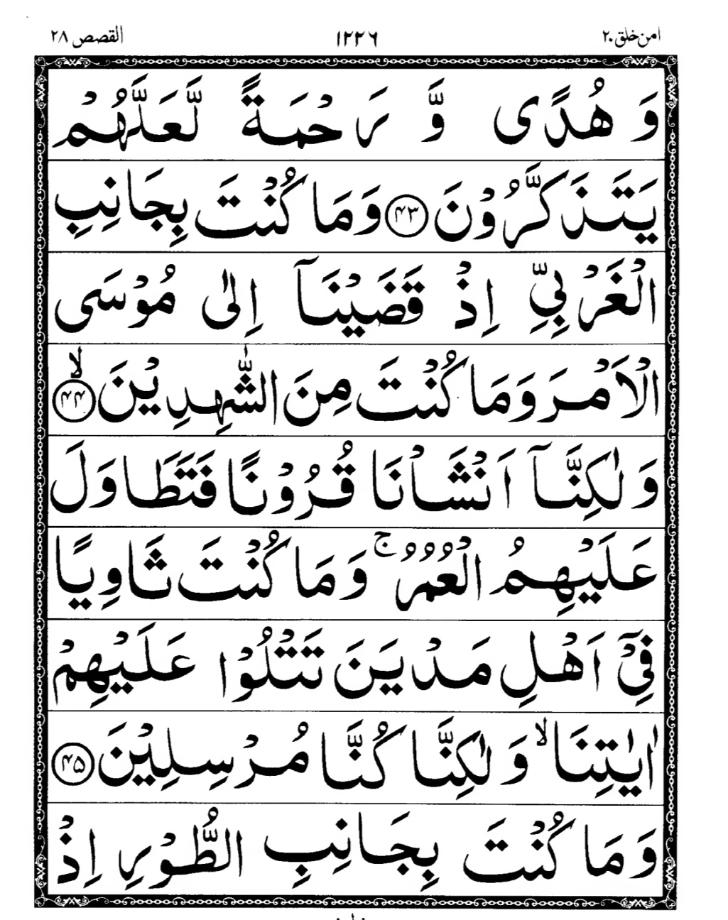 امن خلق ۲۰ ۱۲۲۶ القصص ۲۸
وَ هُدًى وَّ رَحْمَةً لَّعَلَّهُمْ
يَتَذَكَّرُوْنَ ۴۳ وَ مَا كُنْتَ بِجَانِبِ
الْغَرْبِيِّ اِذْ قَضَيْنَاۤ اِلٰى مُوْسَى
الْاَمْرَ وَ مَا كُنْتَ مِنَ الشّٰهِدِيْنَ ۙ۴۴
وَ لٰكِنَّاۤ اَنْشَاْنَا قُرُوْنًا فَتَطَاوَلَ
عَلَيْهِمُ الْعُمُرُ ۚ وَ مَا كُنْتَ ثَاوِيًا
فِيْۤ اَهْلِ مَدْيَنَ تَتْلُوْا عَلَيْهِمْ
اٰيٰتِنَا ۙ وَ لٰكِنَّا كُنَّا مُرْسِلِيْنَ ۴۵
وَ مَا كُنْتَ بِجَانِبِ الطُّوْرِ اِذْ